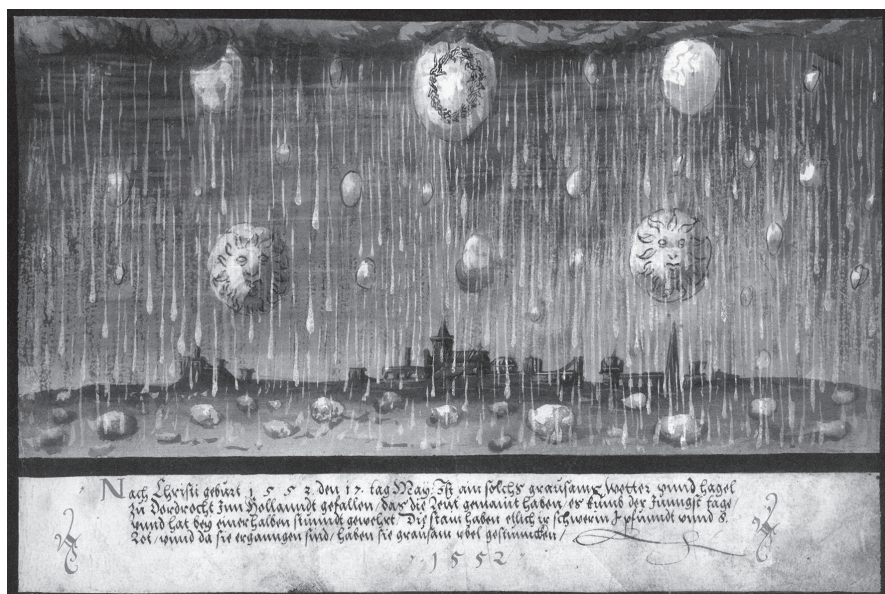 Nach Christi geburt 1 5 5 2. den 17. tag May. Ist ain solchs grausams wetter vnnd hagel
zu Dordrocht Inn Hollanndt gefallen / das die Leüt gemaint haben / es kumb der Jüungst tage /
vnnd hat bey einer halben stunndt gewehrt / Dis stain haben etlich ir schwerin I pfunndt vnnd 8.
Lot / vnnd da sie ergangen sind / haben sie grausam vbel gestunncken /
1 5 5 2